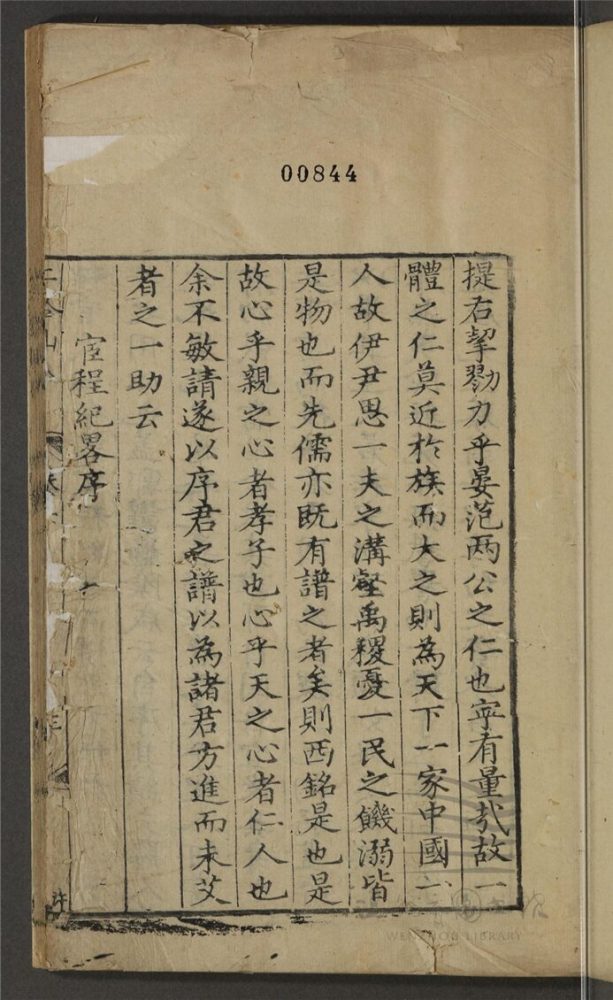 00844
提右挈勠力乎晏范两公之仁也寜有量㢤故一
體之仁莫近扵族而大之則為天下一家中國一
人故伊尹思一夫之溝壑禹稷憂一民之饑溺皆
是物也而先儒亦旣有譜之者矣則西銘是也是
故心乎親之心者孝子也心乎天之心者仁人也
余不敏請遂以序君之譜以為諸君方進而未艾
者之一助云
宦程紀畧序
WENZHOU LIBRARY